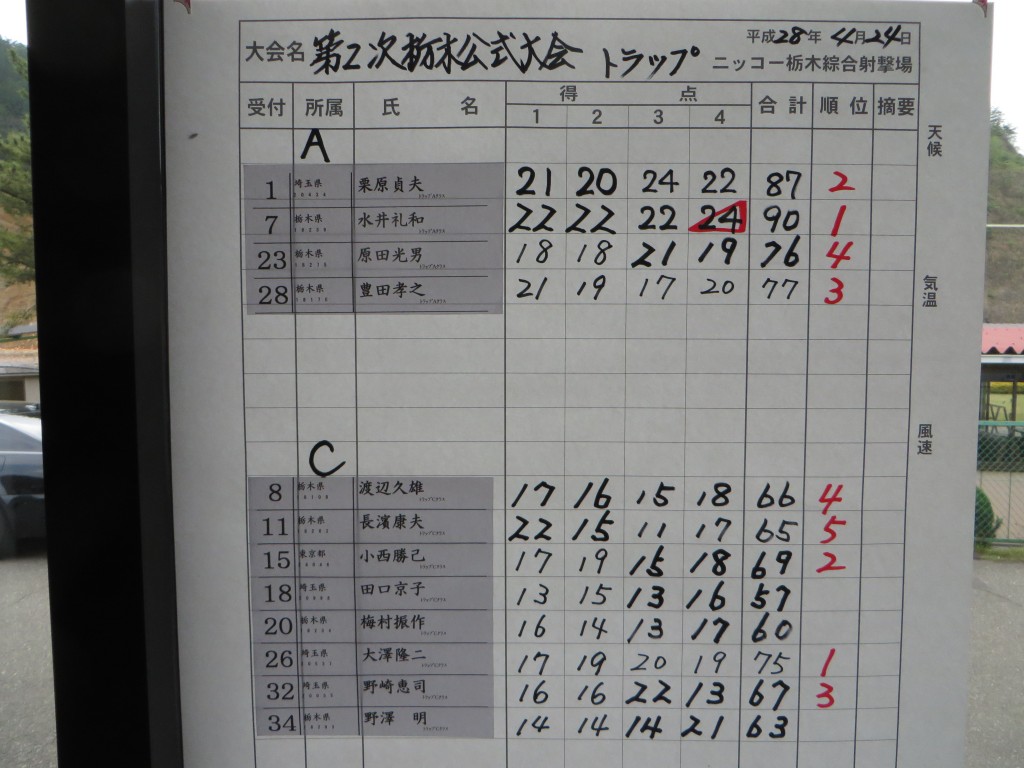 大会名 第2次栃木公式大会 トラップ 平成28年 4月24日
ニッコー栃木綜合射撃場
受付 所属 氏名 得点 合計 順位 摘要
1 2 3 4
天候
A
1 埼玉県 栗原貞夫 21 20 24 22 87 2
7 栃木県 水井礼和 22 22 22 24 90 1
23 栃木県 原田光男 18 18 21 19 76 4
28 栃木県 豊田孝之 21 19 17 20 77 3
気温
風速
C
8 栃木県 渡辺久雄 17 16 15 18 66 4
11 栃木県 長濱康夫 22 15 11 17 65 5
15 東京都 小西勝己 17 19 15 18 69 2
18 埼玉県 田口京子 13 15 13 16 57
20 栃木県 梅村振作 16 14 13 17 60
26 埼玉県 大澤隆二 17 19 20 19 75 1
32 埼玉県 野崎恵司 16 16 22 13 67 3
34 栃木県 野澤 明 14 14 14 21 63